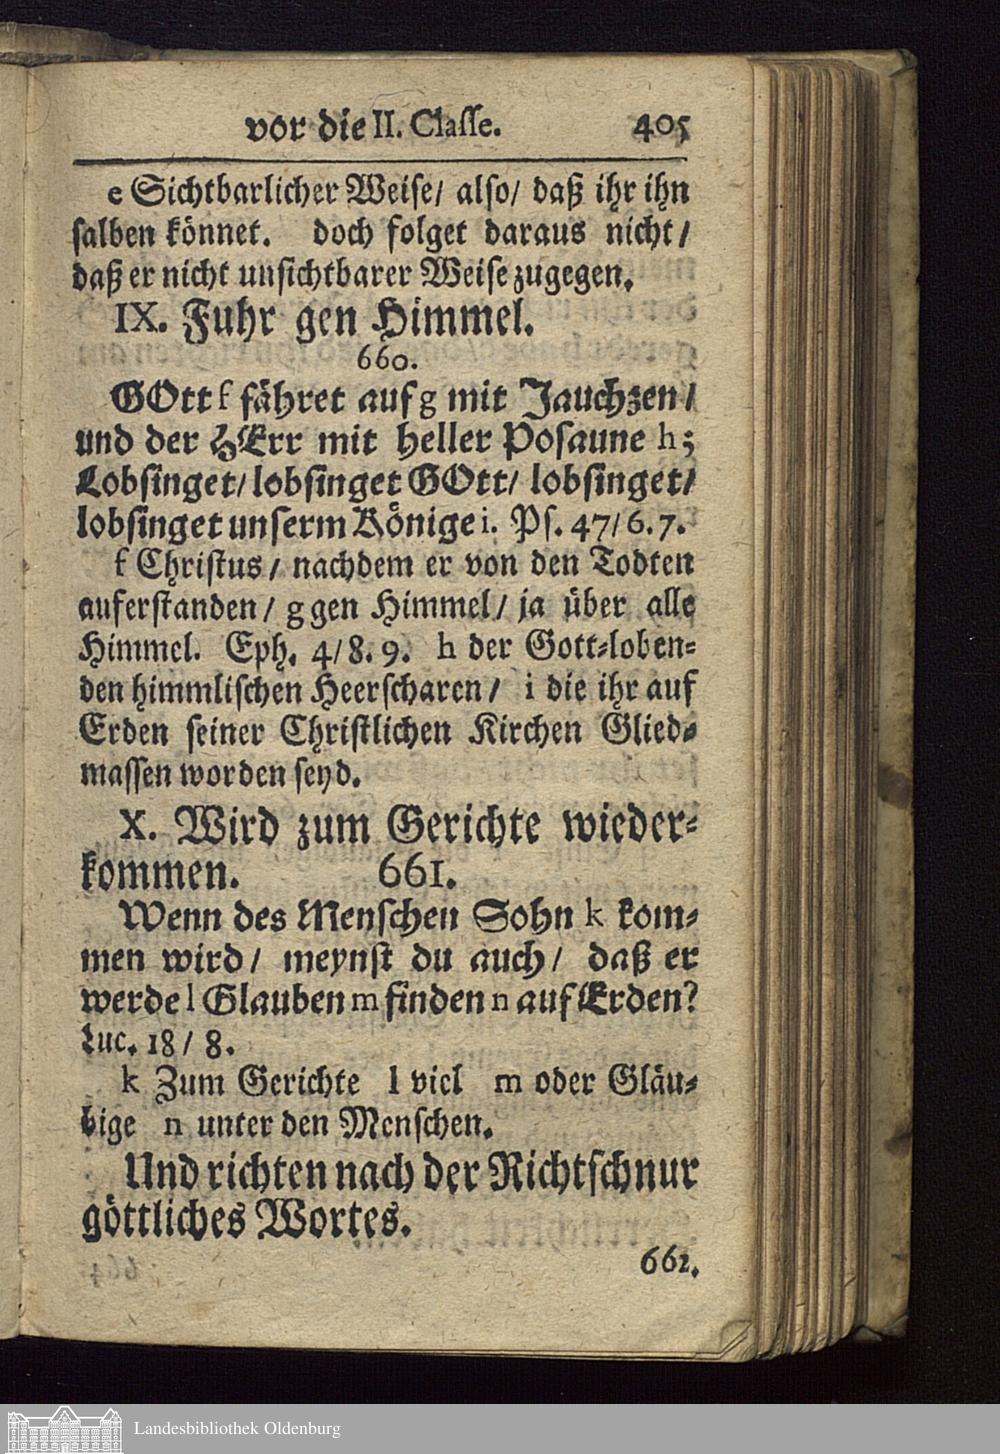 vor die II. Classe. 405
e Sichtbarlicher Weise/ also/ daß ihr ihn
salben könnet. doch folget daraus nicht/
daß er nicht unsichtbarer Weise zugegen.
IX. Fuhr gen Himmel.
660.
GOtt f fähret auf g mit Jauchzen/
und der HErr mit heller Posaune h;
Lobsinget/ lobsinget GOtt/ lobsinget/
lobsinget unserm Könige i. Ps. 47/6.7.
f Christus/ nachdem er von den Todten
auferstanden/ g gen Himmel/ ja über alle
Himmel. Eph. 4/8.9. h der Gott-loben-
den himmlischen Heerscharen/ i die ihr auf
Erden seiner Christlichen Kirchen Glied-
massen worden seyd.
X. Wird zum Gerichte wieder-
kommen. 661.
Wenn des Menschen Sohn k kom-
men wird/ meynst du auch/ daß er
werde l Glauben m finden n auf Erden?
Luc. 18/ 8.
k Zum Gerichte l viel m oder Gläu-
bige n unter den Menschen.
Und richten nach der Richtschnur
göttliches Wortes.
662.
Landesbibliothek Oldenburg